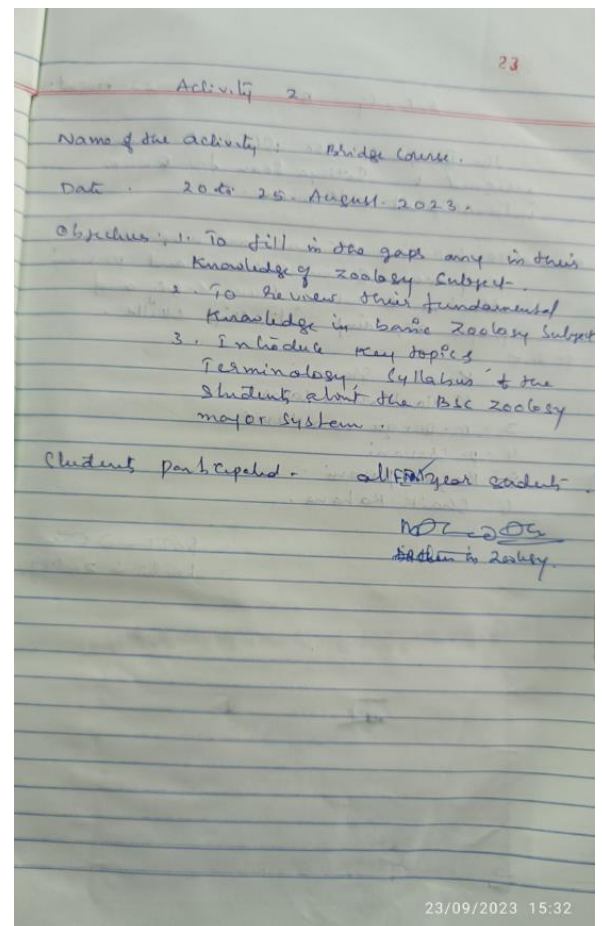 23
Activity 2
Name of the activity : Bridge Course.
Date . 20 to 25. August. 2023.
Objectives : 1. To fill in the gaps any in their
Knowledge of zoology Subject.
2. To Review their fundamental
Knowledge in basic Zoology Subject
3. Introduce key topics
Terminology, Syllabus & the
Students about the BSC zoology
major system.
Students participated - all year students.
in zoology.
23/09/2023 15:32